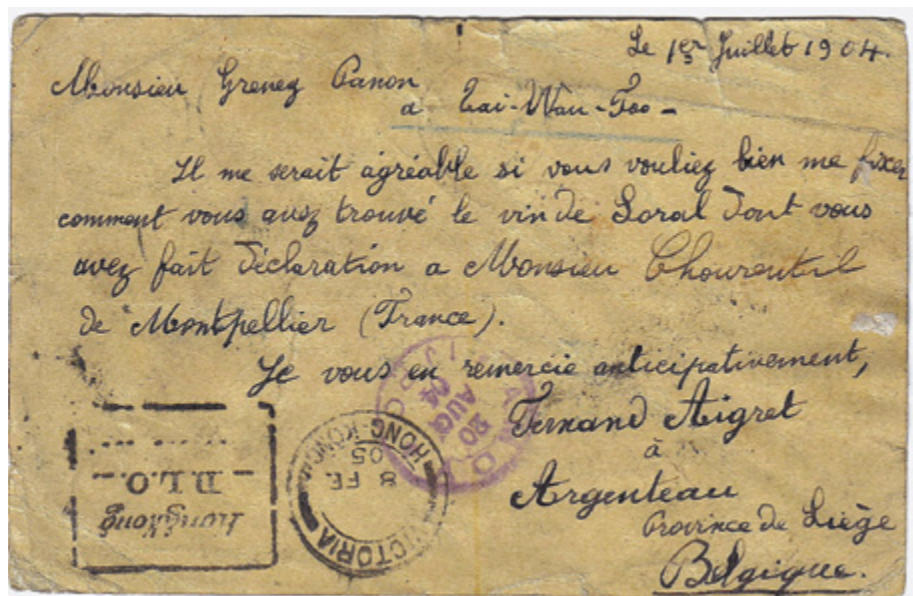 Le 1er Juillet 1904.
Monsieur Grenez Panon
a Tai-Wan-Foo-
Il me serait agréable si vous vouliez bien me fixer
comment vous avez trouvé le vin de Soral dont vous
avez fait déclaration a Monsieur
de Montpellier (France).
Je vous en remercie anticipativement,
Fernand Aigret
à
Argenteau
Province de Liège
Belgique.
HongKong
D.L.O.
VICTORIA HONG-KONG
8 FE
05
20
AUG
04